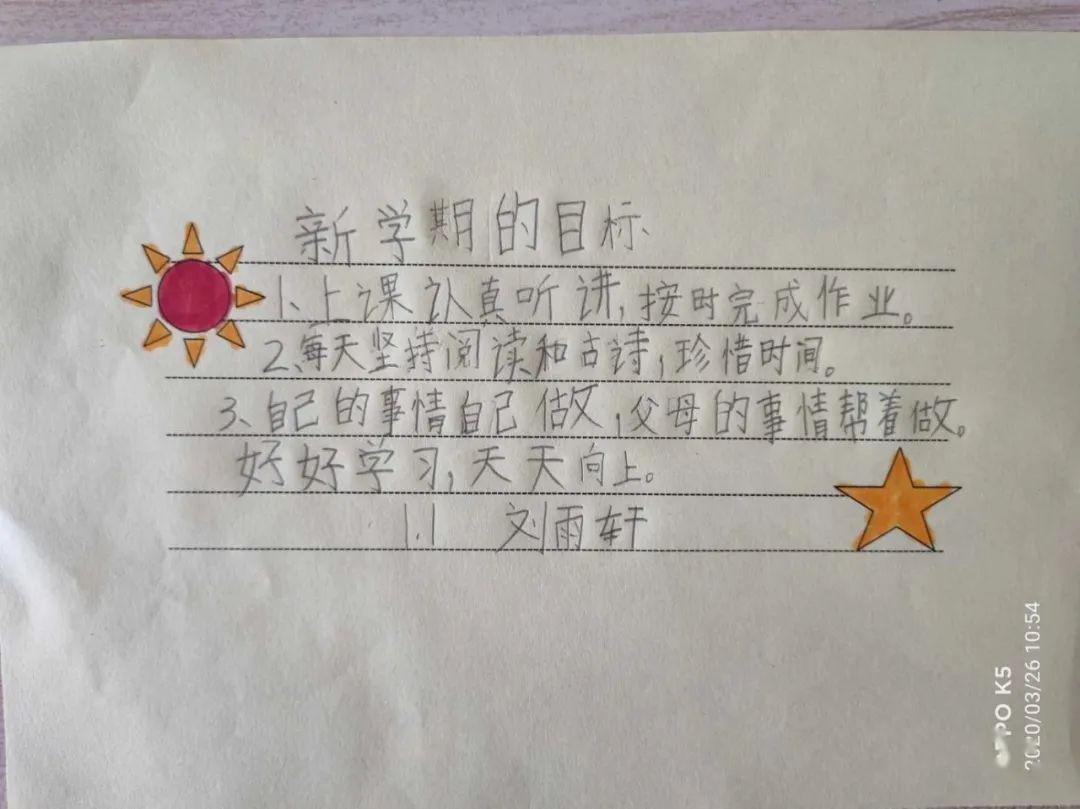 新学期的目标
1、上课认真听讲,按时完成作业。
2、每天坚持阅读和古诗,珍惜时间。
3、自己的事情自己做,父母的事情帮着做。
好好学习,天天向上。
1.1 刘雨轩
OPPO K5
2020/03/26 10:54